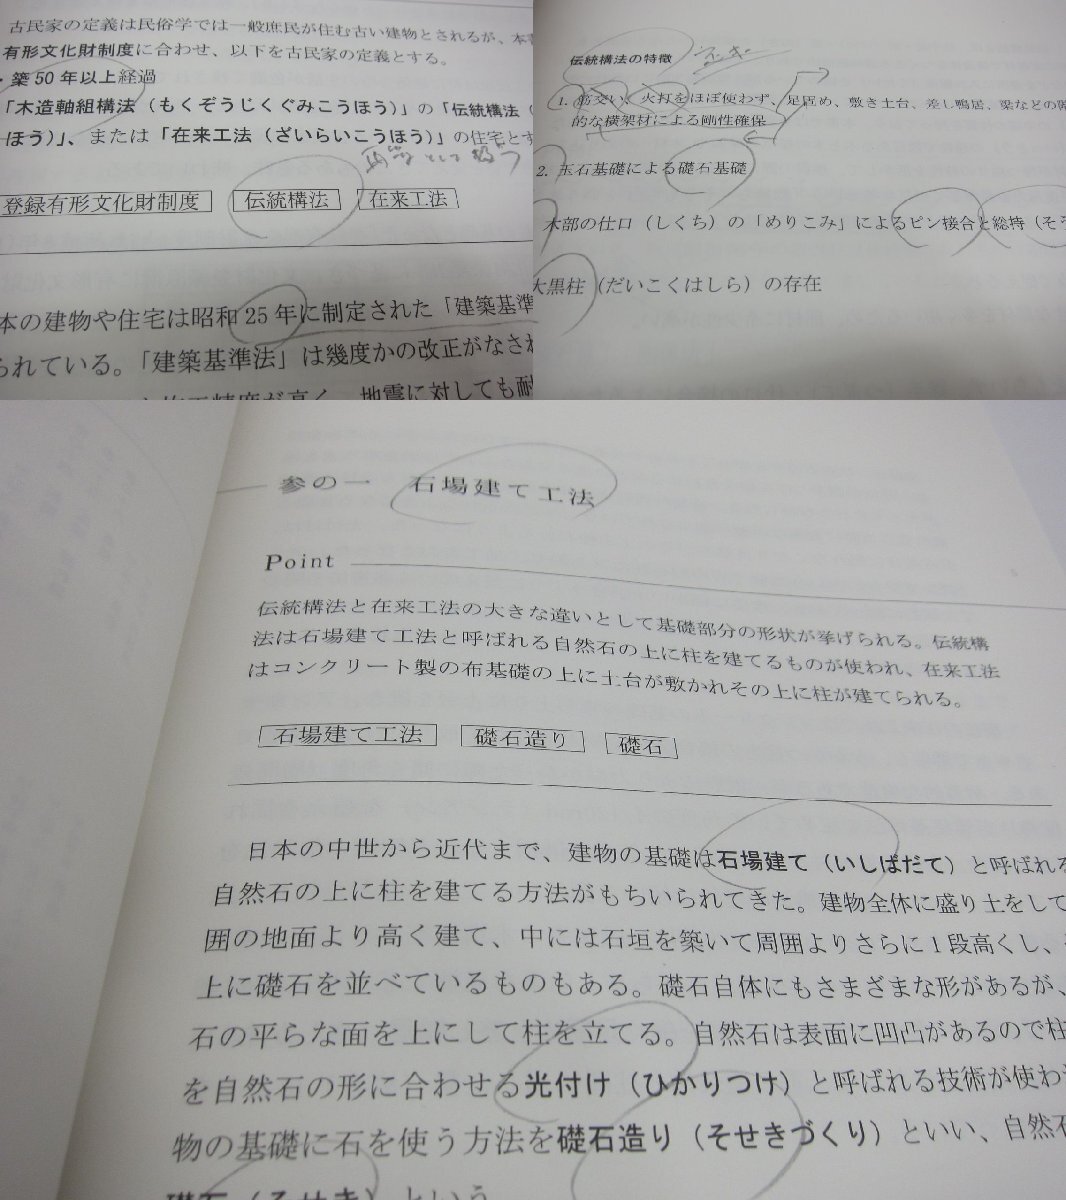 古民家の定義は民俗学では一般庶民が住む古い建物とされるが、本
有形文化財制度に合わせ、以下を古民家の定義とする。
・築50年以上経過
「木造軸組構法（もくぞうじくぐみこうほう）」の「伝統構法（
ほう）」、または「在来工法（ざいらいこうほう）」の住宅とす
として
登録有形文化財制度 伝統構法 在来工法
本の建物や住宅は昭和25年に制定された「建築基準
られている。「建築基準法」は幾度かの改正がなされ
施工精度が高く、地震に対しても耐
伝統構法の特徴
1. 筋交い、火打をほぼ使わず、足固め、敷き土台、差し鴨居、梁などの
的な横架材による剛性確保
2. 玉石基礎による礎石基礎
木部の仕口（しくち）の「めりこみ」によるピン接合と総持（そう
大黒柱（だいこくはしら）の存在
参の一 石場建て工法
Point
伝統構法と在来工法の大きな違いとして基礎部分の形状が挙げられる。伝統構
法は石場建て工法と呼ばれる自然石の上に柱を建てるものが使われ、在来工法
はコンクリート製の布基礎の上に土台が敷かれその上に柱が建てられる。
石場建て工法 礎石造り 礎石
日本の中世から近代まで、建物の基礎は石場建て（いしばだて）と呼ばれる
自然石の上に柱を建てる方法がもちいられてきた。建物全体に盛り土をして
囲の地面より高く建て、中には石垣を築いて周囲よりさらに1段高くし、
上に礎石を並べているものもある。礎石自体にもさまざまな形があるが、
石の平らな面を上にして柱を立てる。自然石は表面に凹凸があるので柱
を自然石の形に合わせる光付け（ひかりつけ）と呼ばれる技術が使わ
物の基礎に石を使う方法を礎石造り（そせきづくり）といい、自然石
礎石（そせき）という